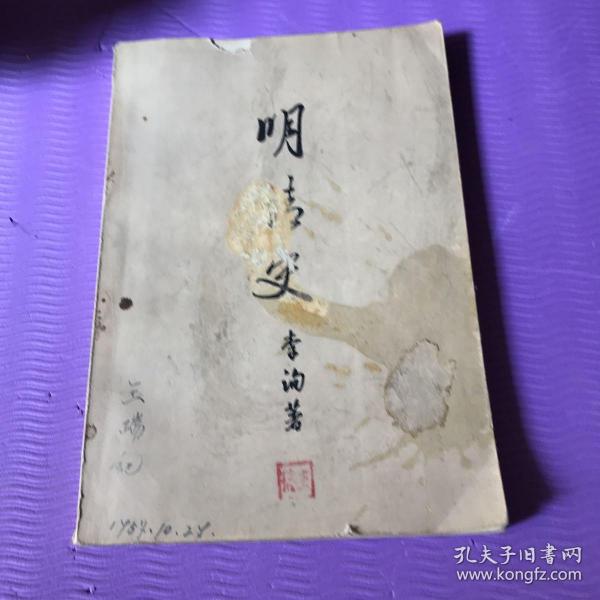 明清史
李洵著
1957.10.28.
孔夫子旧書网
www.kongfz.com